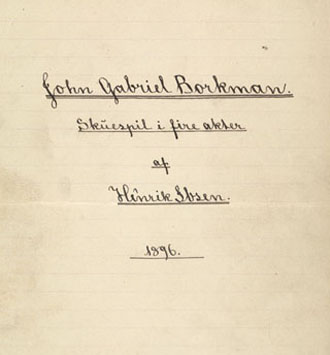 John Gabriel Borkman.
Skuespil i fire akter
af
Henrik Ibsen.
1896.